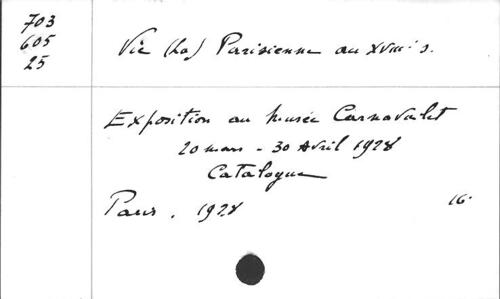 703
605
25
Vie (La) Parisienne au XVIIIe s.
Exposition au Musée Carnavalet
20 mars - 30 Avril 1928
Catalogue
Paris. 1928
16°